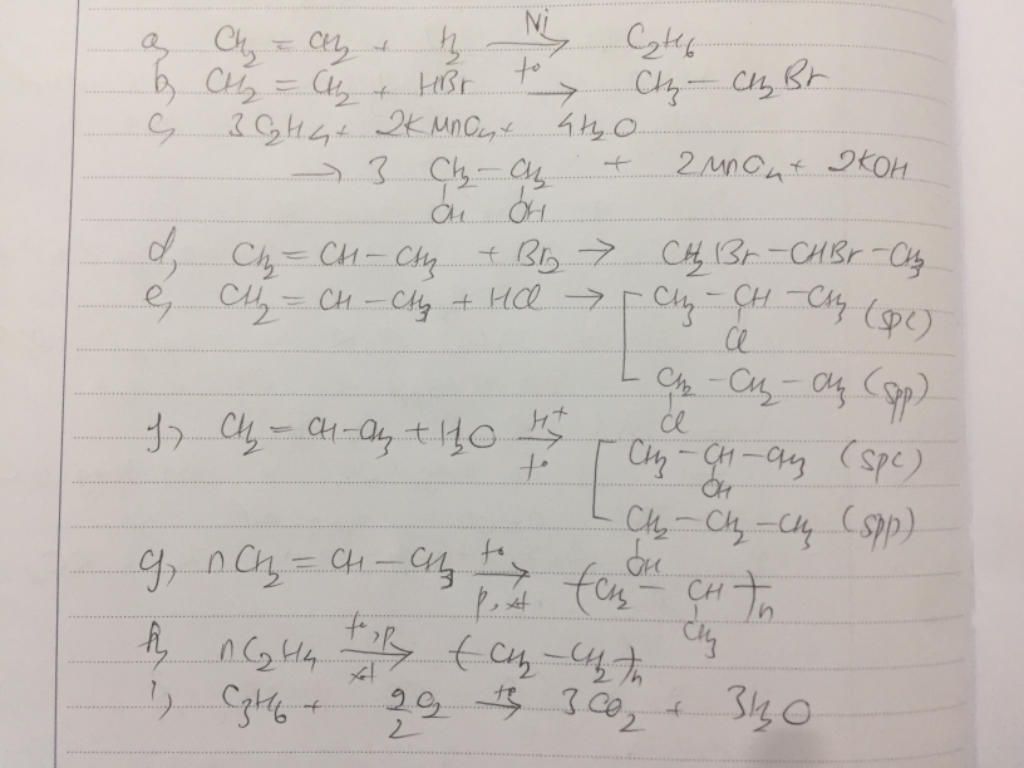 a, CH2 = CH2 + H2 —Ni, t°→ C2H6
b, CH2 = CH2 + HBr → CH3 – CH2Br
c, 3C2H4 + 2KMnO4 + 4H2O
→ 3 CH2 – CH2 + 2MnO4 + 2KOH
OH OH
d, CH2 = CH – CH3 + Br2 → CH2Br – CHBr – CH3
e, CH2 = CH – CH3 + HCl → CH3 – CH – CH3 (spc)
Cl
CH2 – CH2 – CH3 (spp)
Cl
f, CH2 = CH – CH3 + H2O —H+, t°→ CH3 – CH – CH3 (spc)
OH
CH2 – CH2 – CH3 (spp)
OH
g, nCH2 = CH – CH3 —t°, p, xt→ (CH2 – CH)n
CH3
h, nC2H4 —t°, p, xt→ (CH2 – CH2)n
i, C3H6 + 9/2 O2 —t°→ 3CO2 + 3H2O